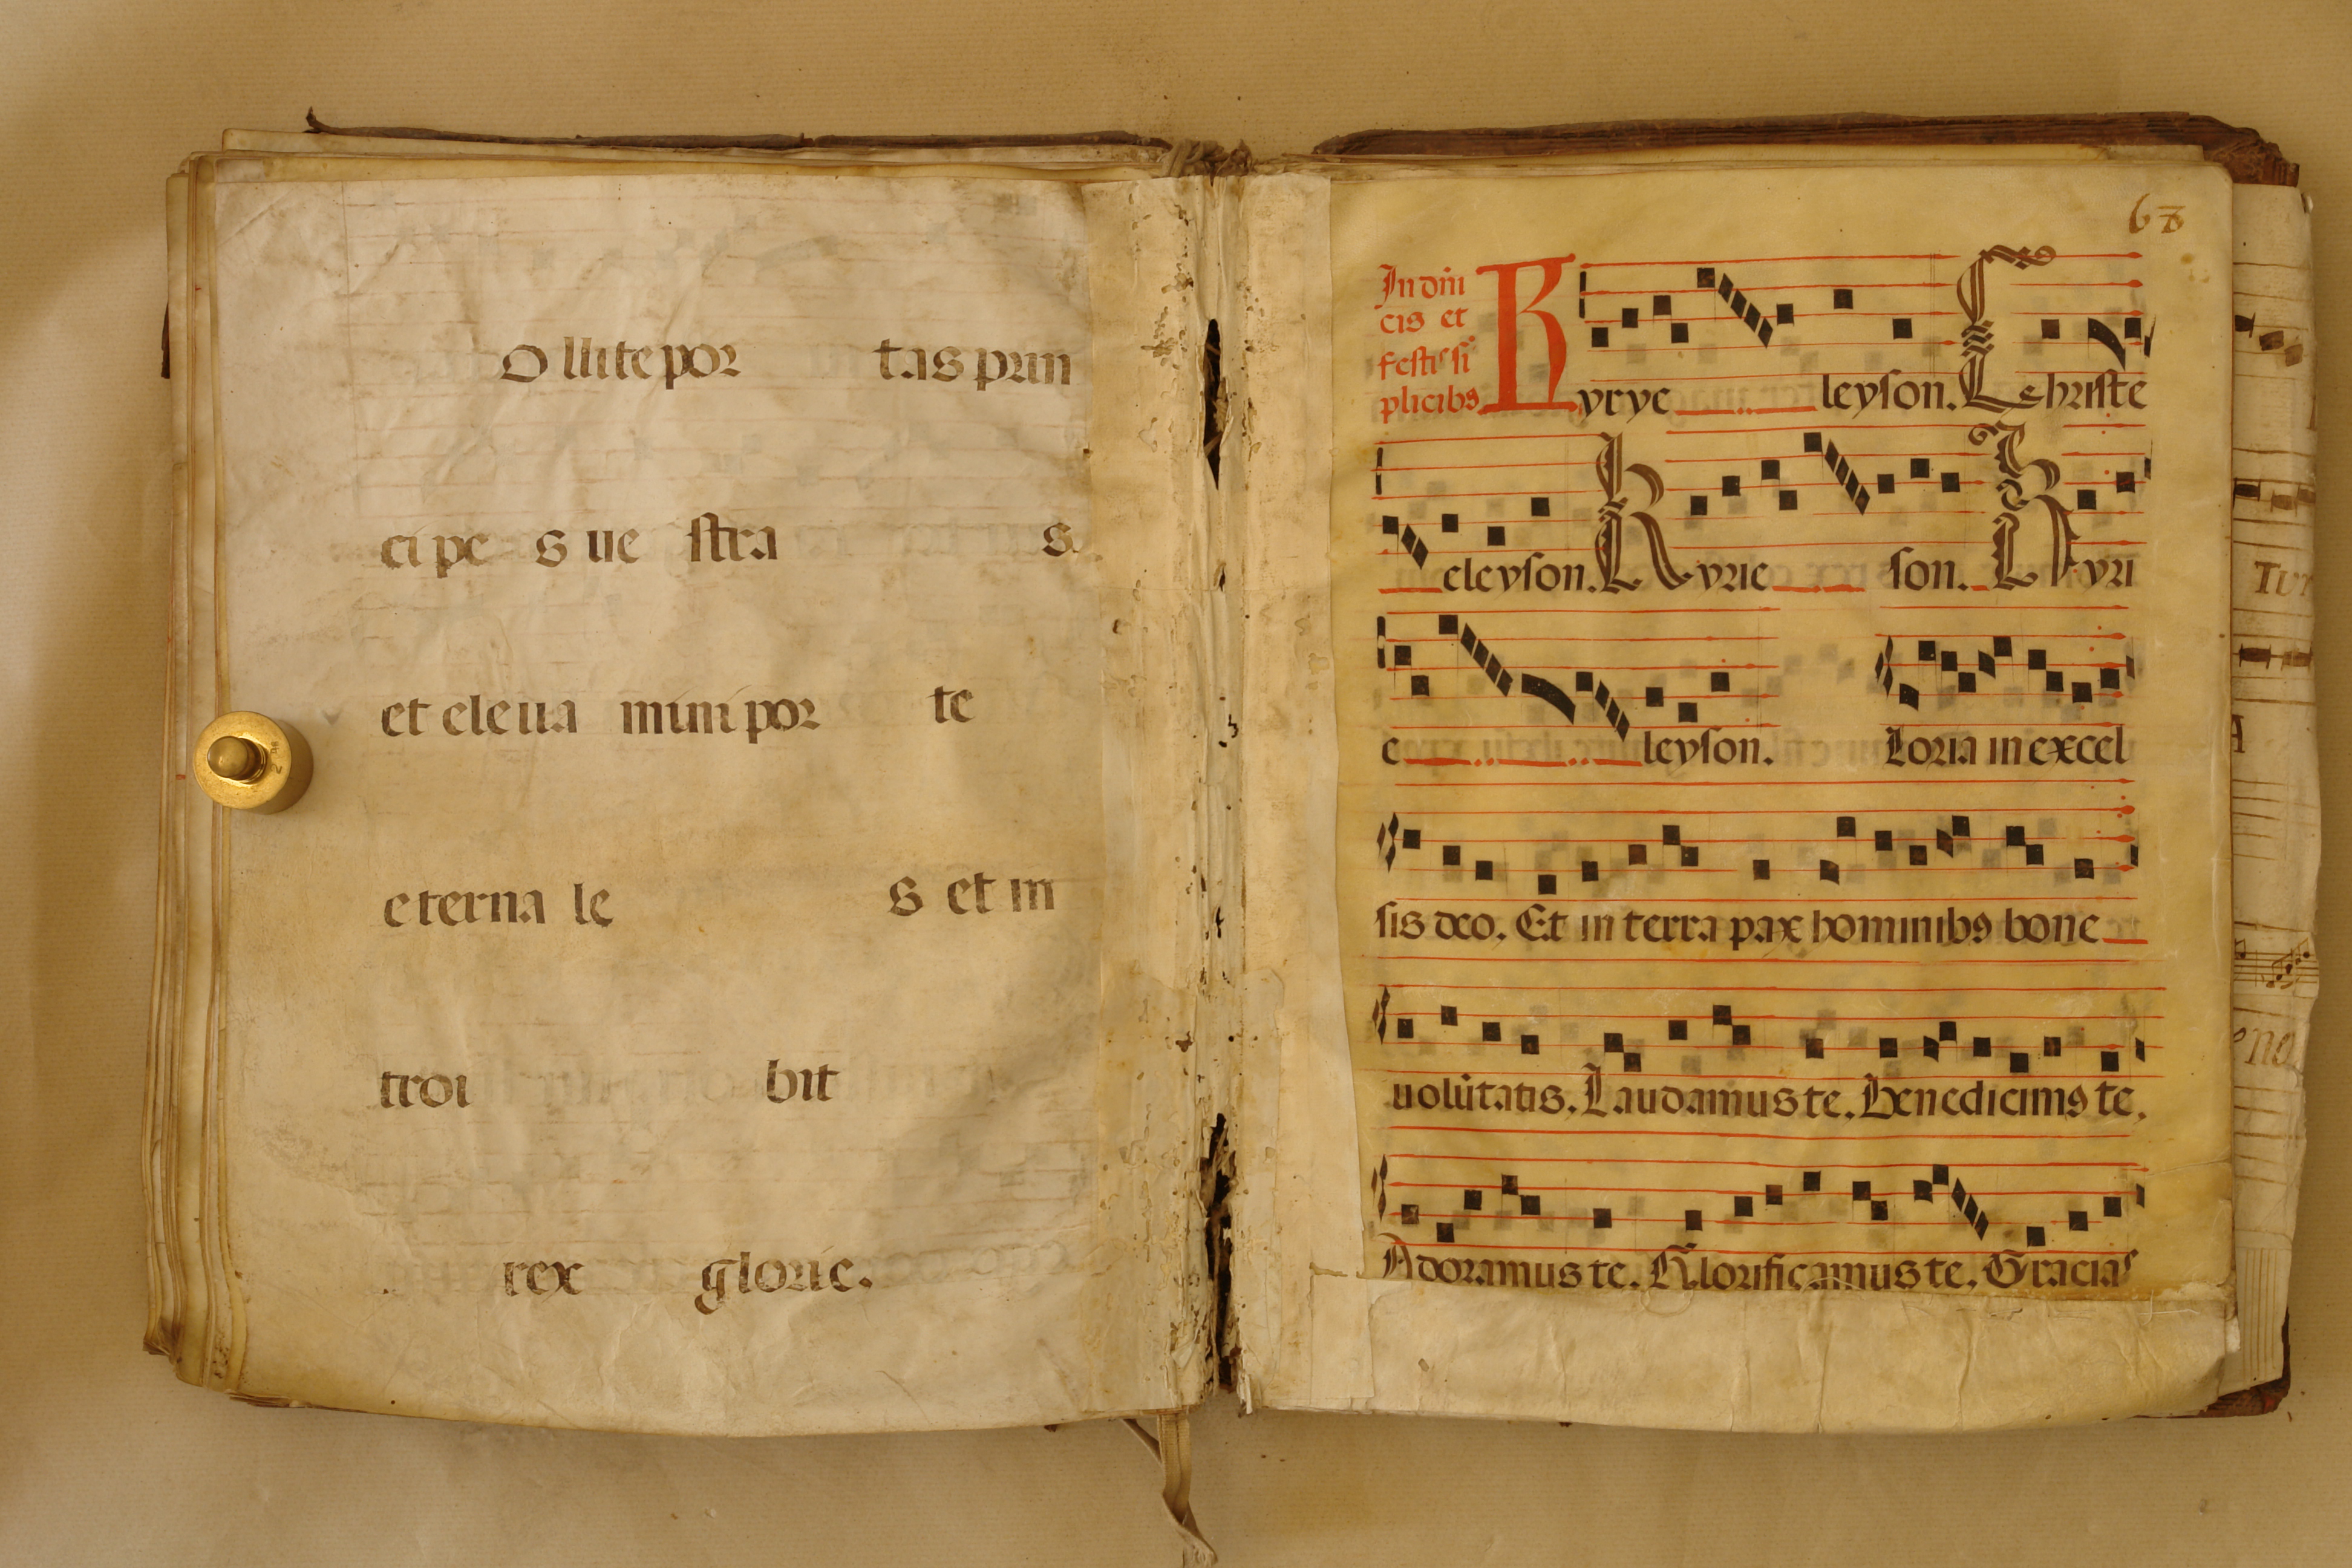 ollite por tas prin
ci pe s ue stra s.
et eleua mini por te
eterna le s et in
troi bit
rex glorie.
68
In dnī
cis et
festis si
plicibꝰ
Kyrye leyson. Christe
eleyson. Kyrie son. Kyri
e leyson. Loria in excel
sis deo. Et in terra pax hominibꝰ bone
uolūtatis. Laudamus te. Benedicimꝰ te.
Adoramus te. Glorificamus te. Gracias